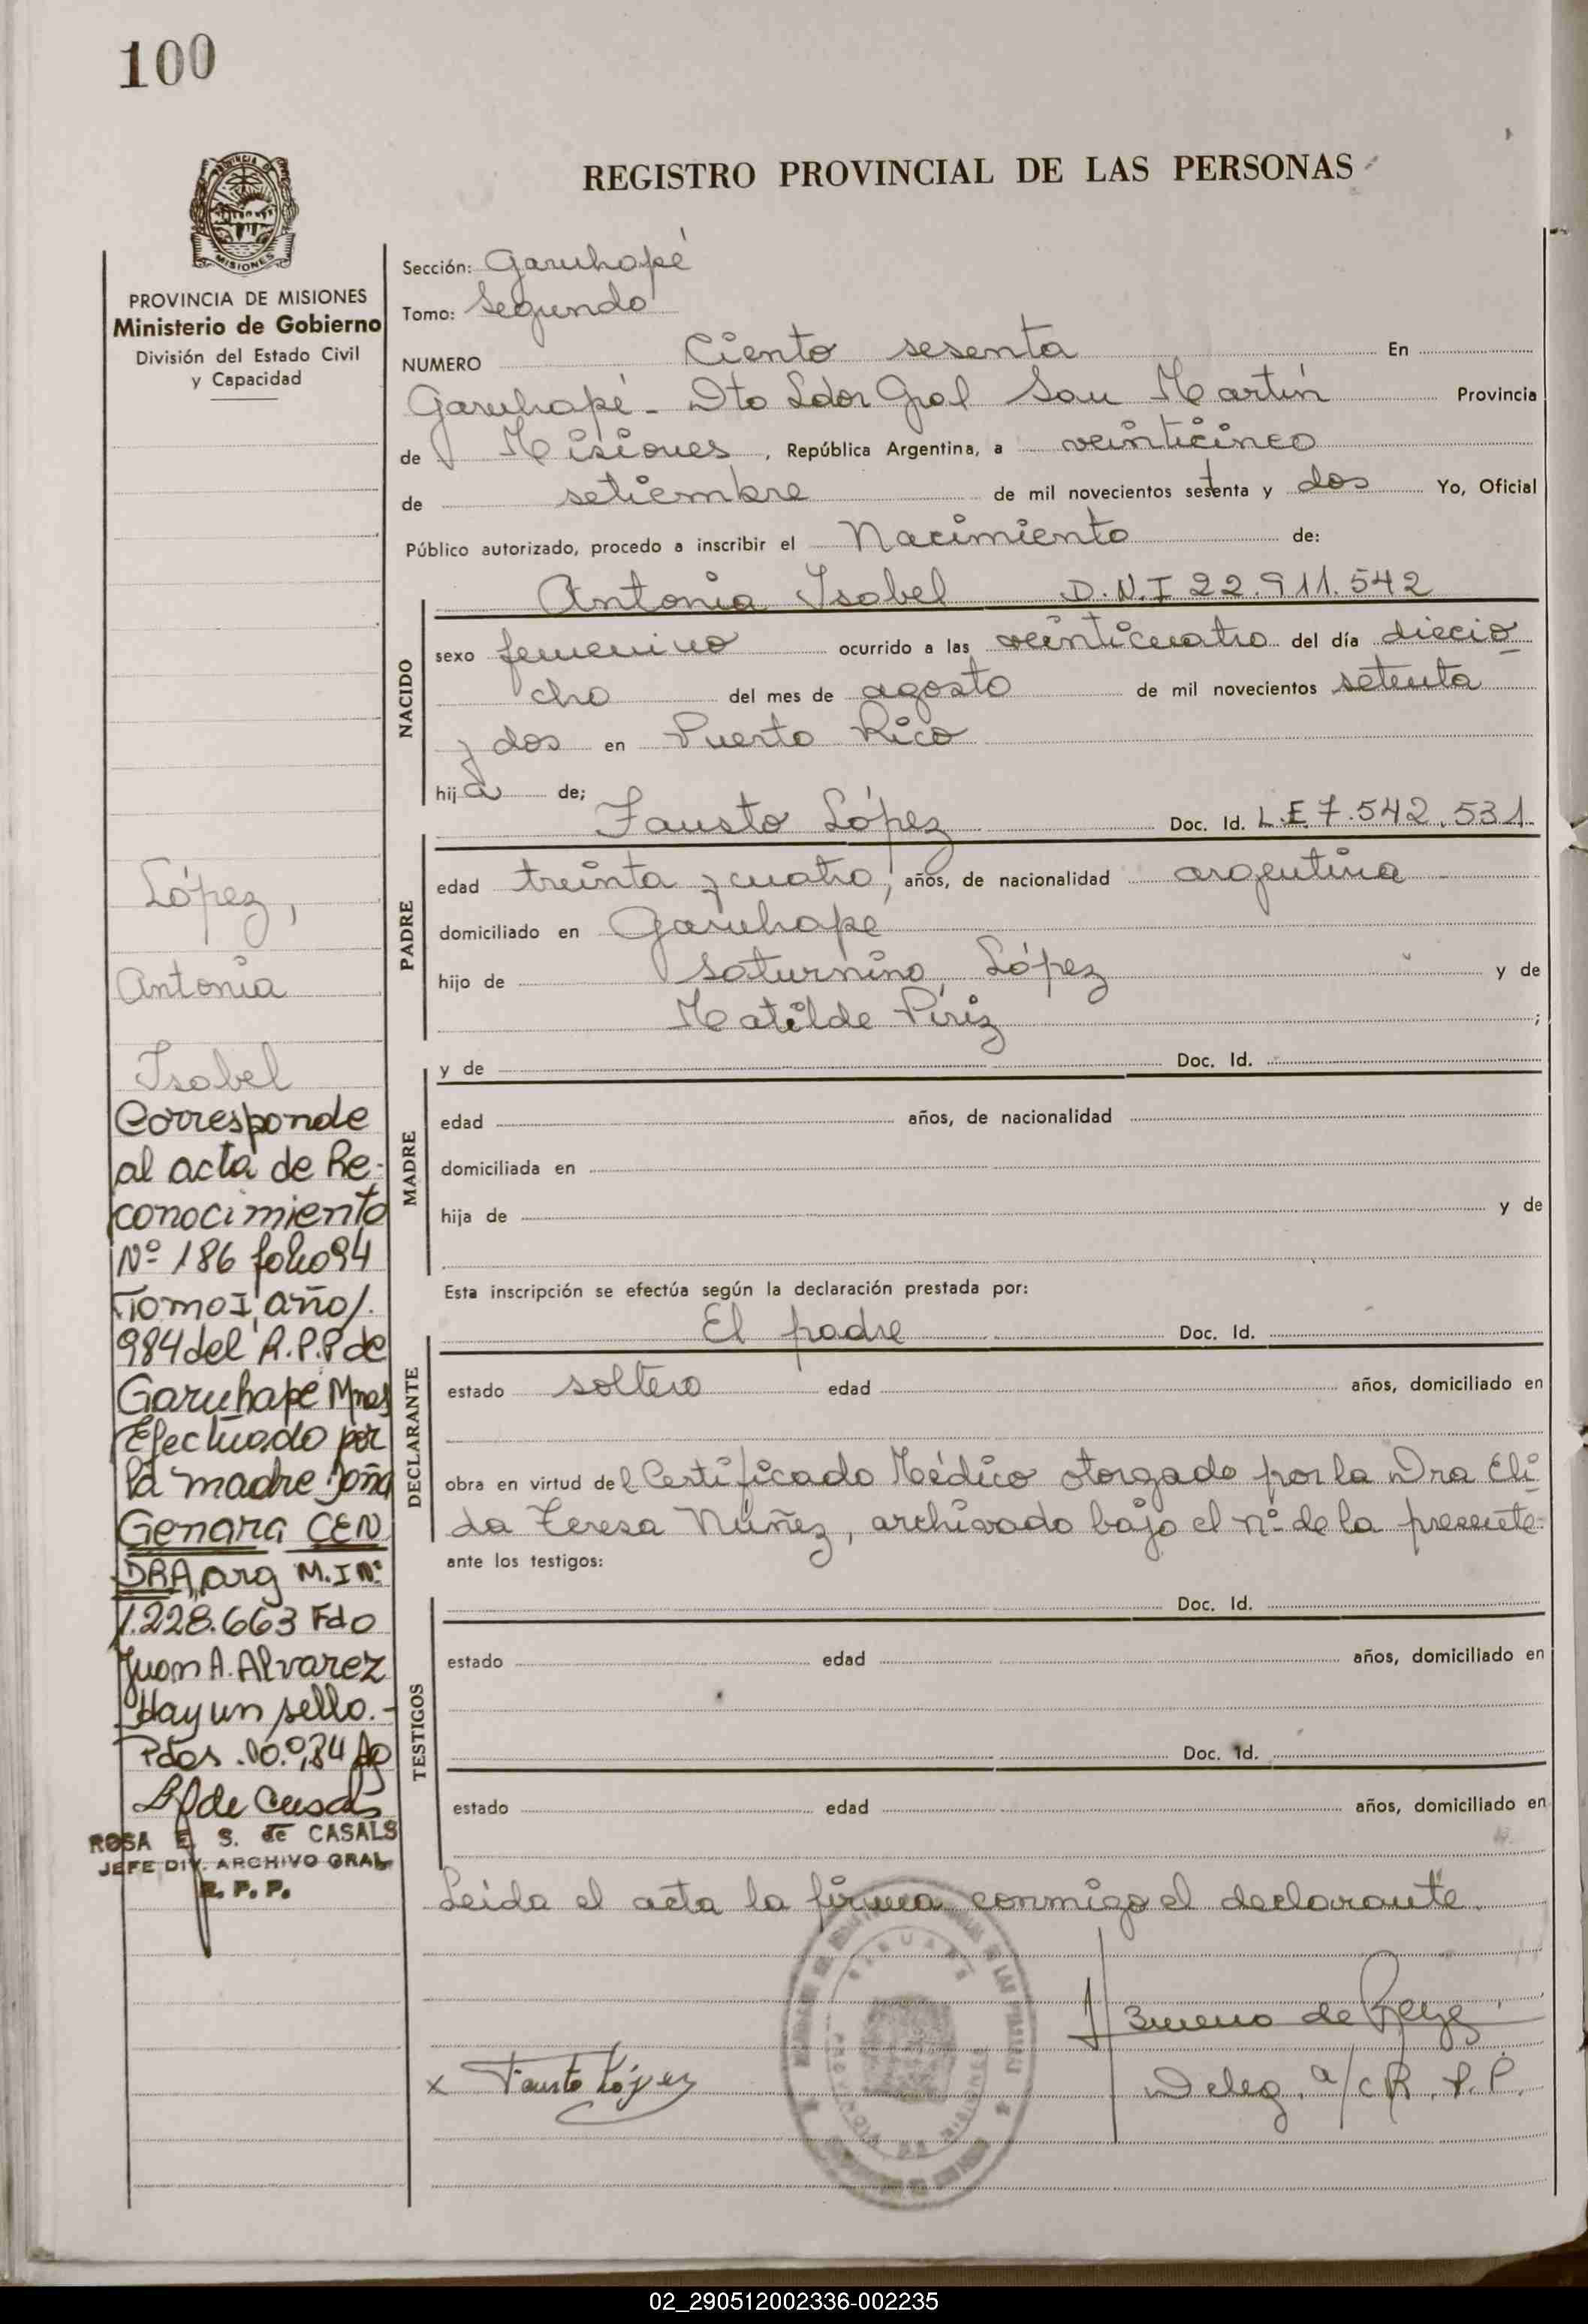 100
REGISTRO PROVINCIAL DE LAS PERSONAS
MISIONES
PROVINCIA DE MISIONES
Ministerio de Gobierno
División del Estado Civil
y Capacidad
López,
Antonia
Isabel
Corresponde
al acta de Re-
conocimiento
Nº 186 folio 94
Tomo I, año 1.
984 del R.P.P de
Garuhapé Mnes
Efectuado por
la madre Doña
Genara CEN
DRA, arg M.I Nº
1.228.663 Fdo
Juan A. Alvarez
Hay un sello.-
Pdas
de Casals
ROSA E. S. de CASALS
JEFE DIV. ARCHIVO GRAL
R. P. P.
Sección: Garuhapé
Tomo: Segundo
NUMERO Ciento sesenta En
Garuhapé - Dto Ldor Gral San Martín Provincia
de Misiones, República Argentina, a veinticinco
de setiembre de mil novecientos setenta y dos Yo, Oficial
Público autorizado, procedo a inscribir el Nacimiento de:
Antonia Isabel D.N.I 22.911.542
NACIDO
sexo femenino ocurrido a las veinticuatro del día diecio
cho del mes de agosto de mil novecientos setenta
y dos en Puerto Rico
hija de;
Fausto López Doc. Id. L.E. 7.542.531
PADRE
edad treinta y cuatro, años, de nacionalidad argentina -
domiciliado en Garuhapé
hijo de Saturnino López y de
Matilde Píriz ;
y de Doc. Id.
MADRE
edad años, de nacionalidad
domiciliada en
hija de y de
Esta inscripción se efectúa según la declaración prestada por:
El padre Doc. Id.
DECLARANTE
estado soltero edad años, domiciliado en
obra en virtud del Certificado Médico otorgado por la Dra Eli
da Teresa Núñez, archivado bajo el nº de la presente-
ante los testigos:
Doc. Id.
TESTIGOS
estado edad años, domiciliado en
Doc. Id.
estado edad años, domiciliado en
Leida el acta la firma conmigo el declarante.
x Fausto López
Deleg. a/c R.P.P.
02_290512002336-002235